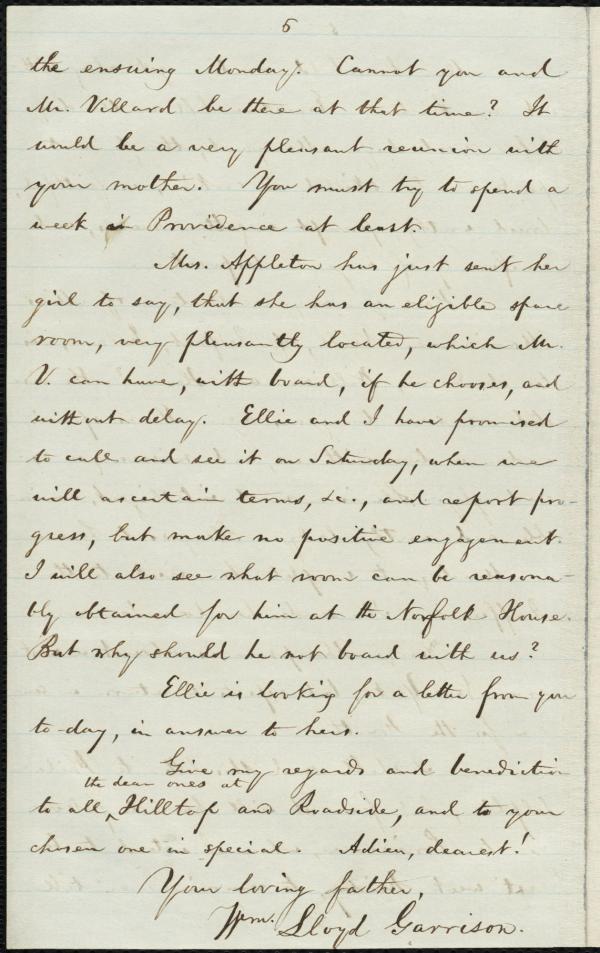 5
the ensuing Monday. Cannot you and
Mr. Villard be there at that time? It
would be a very pleasant reunion with
your mother. You must try to spend a
week in Providence at least.
Mrs. Appleton has just sent her
girl to say, that she has an eligible spare
room, very pleasantly located, which Mr.
V. can have, with board, if he chooses, and
without delay. Ellie and I have promised
to call and see it on Saturday, when we
will ascertain terms, &c., and report pro-
gress, but make no positive engagement.
I will also see what room can be reasona-
bly obtained for him at the Norfolk House.
But why should he not board with us?
Ellie is looking for a letter from you
to-day, in answer to hers.
Give my regards and benediction
the dear ones at
to all ‸ Hilltop and Roadside, and to your
chosen one in special. Adieu, dearest!
Your loving father,
Wm. Lloyd Garrison.